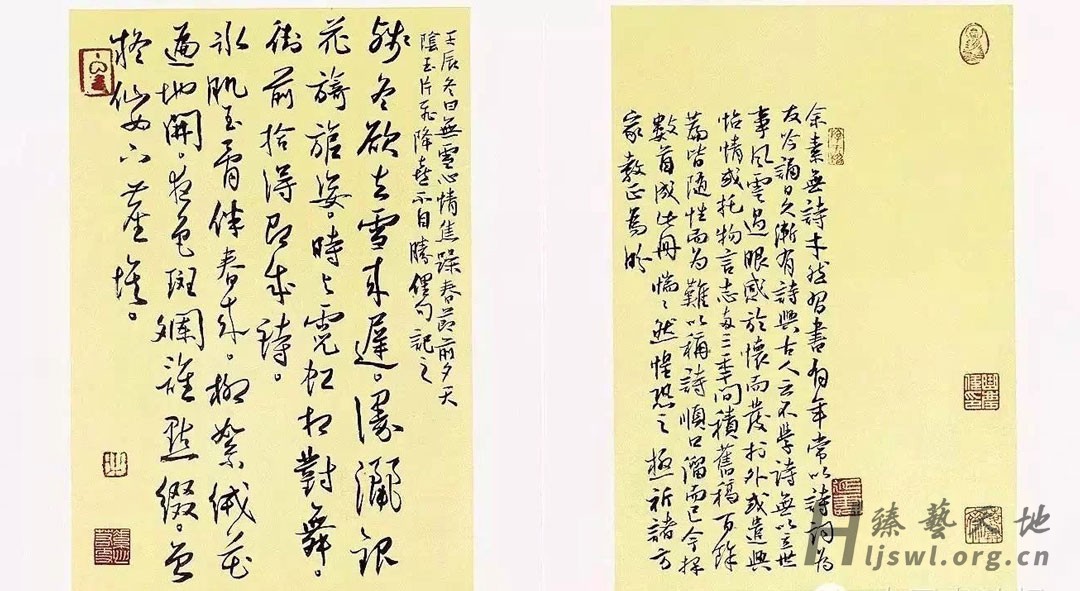 余素無詩才然習書有年常以詩詞為
友吟誦日久漸有詩興古人云不學詩無以立世
事風雲過眼感於懷而發於外或遣興
怡情或托物言志每三季間積舊稿百餘
篇皆隨性而為難以稱詩順口溜而已今擇
數首成此冊惴惴然惶恐之極祈諸方
家教正焉盼
壬辰冬日無雪心情焦躁春節前夕天
陰玉片飛降喜不自勝俚句記之
殘冬欲去雪來遲。瀑灑銀
花旖旎姿。時與霓虹相對舞。
街前拾得即成詩。
冰肌玉骨伴春來。柳絮絨花
遍地開。夜色斑斕誰點綴。
仙女下
臻藝天地
Hljswl.org.cn